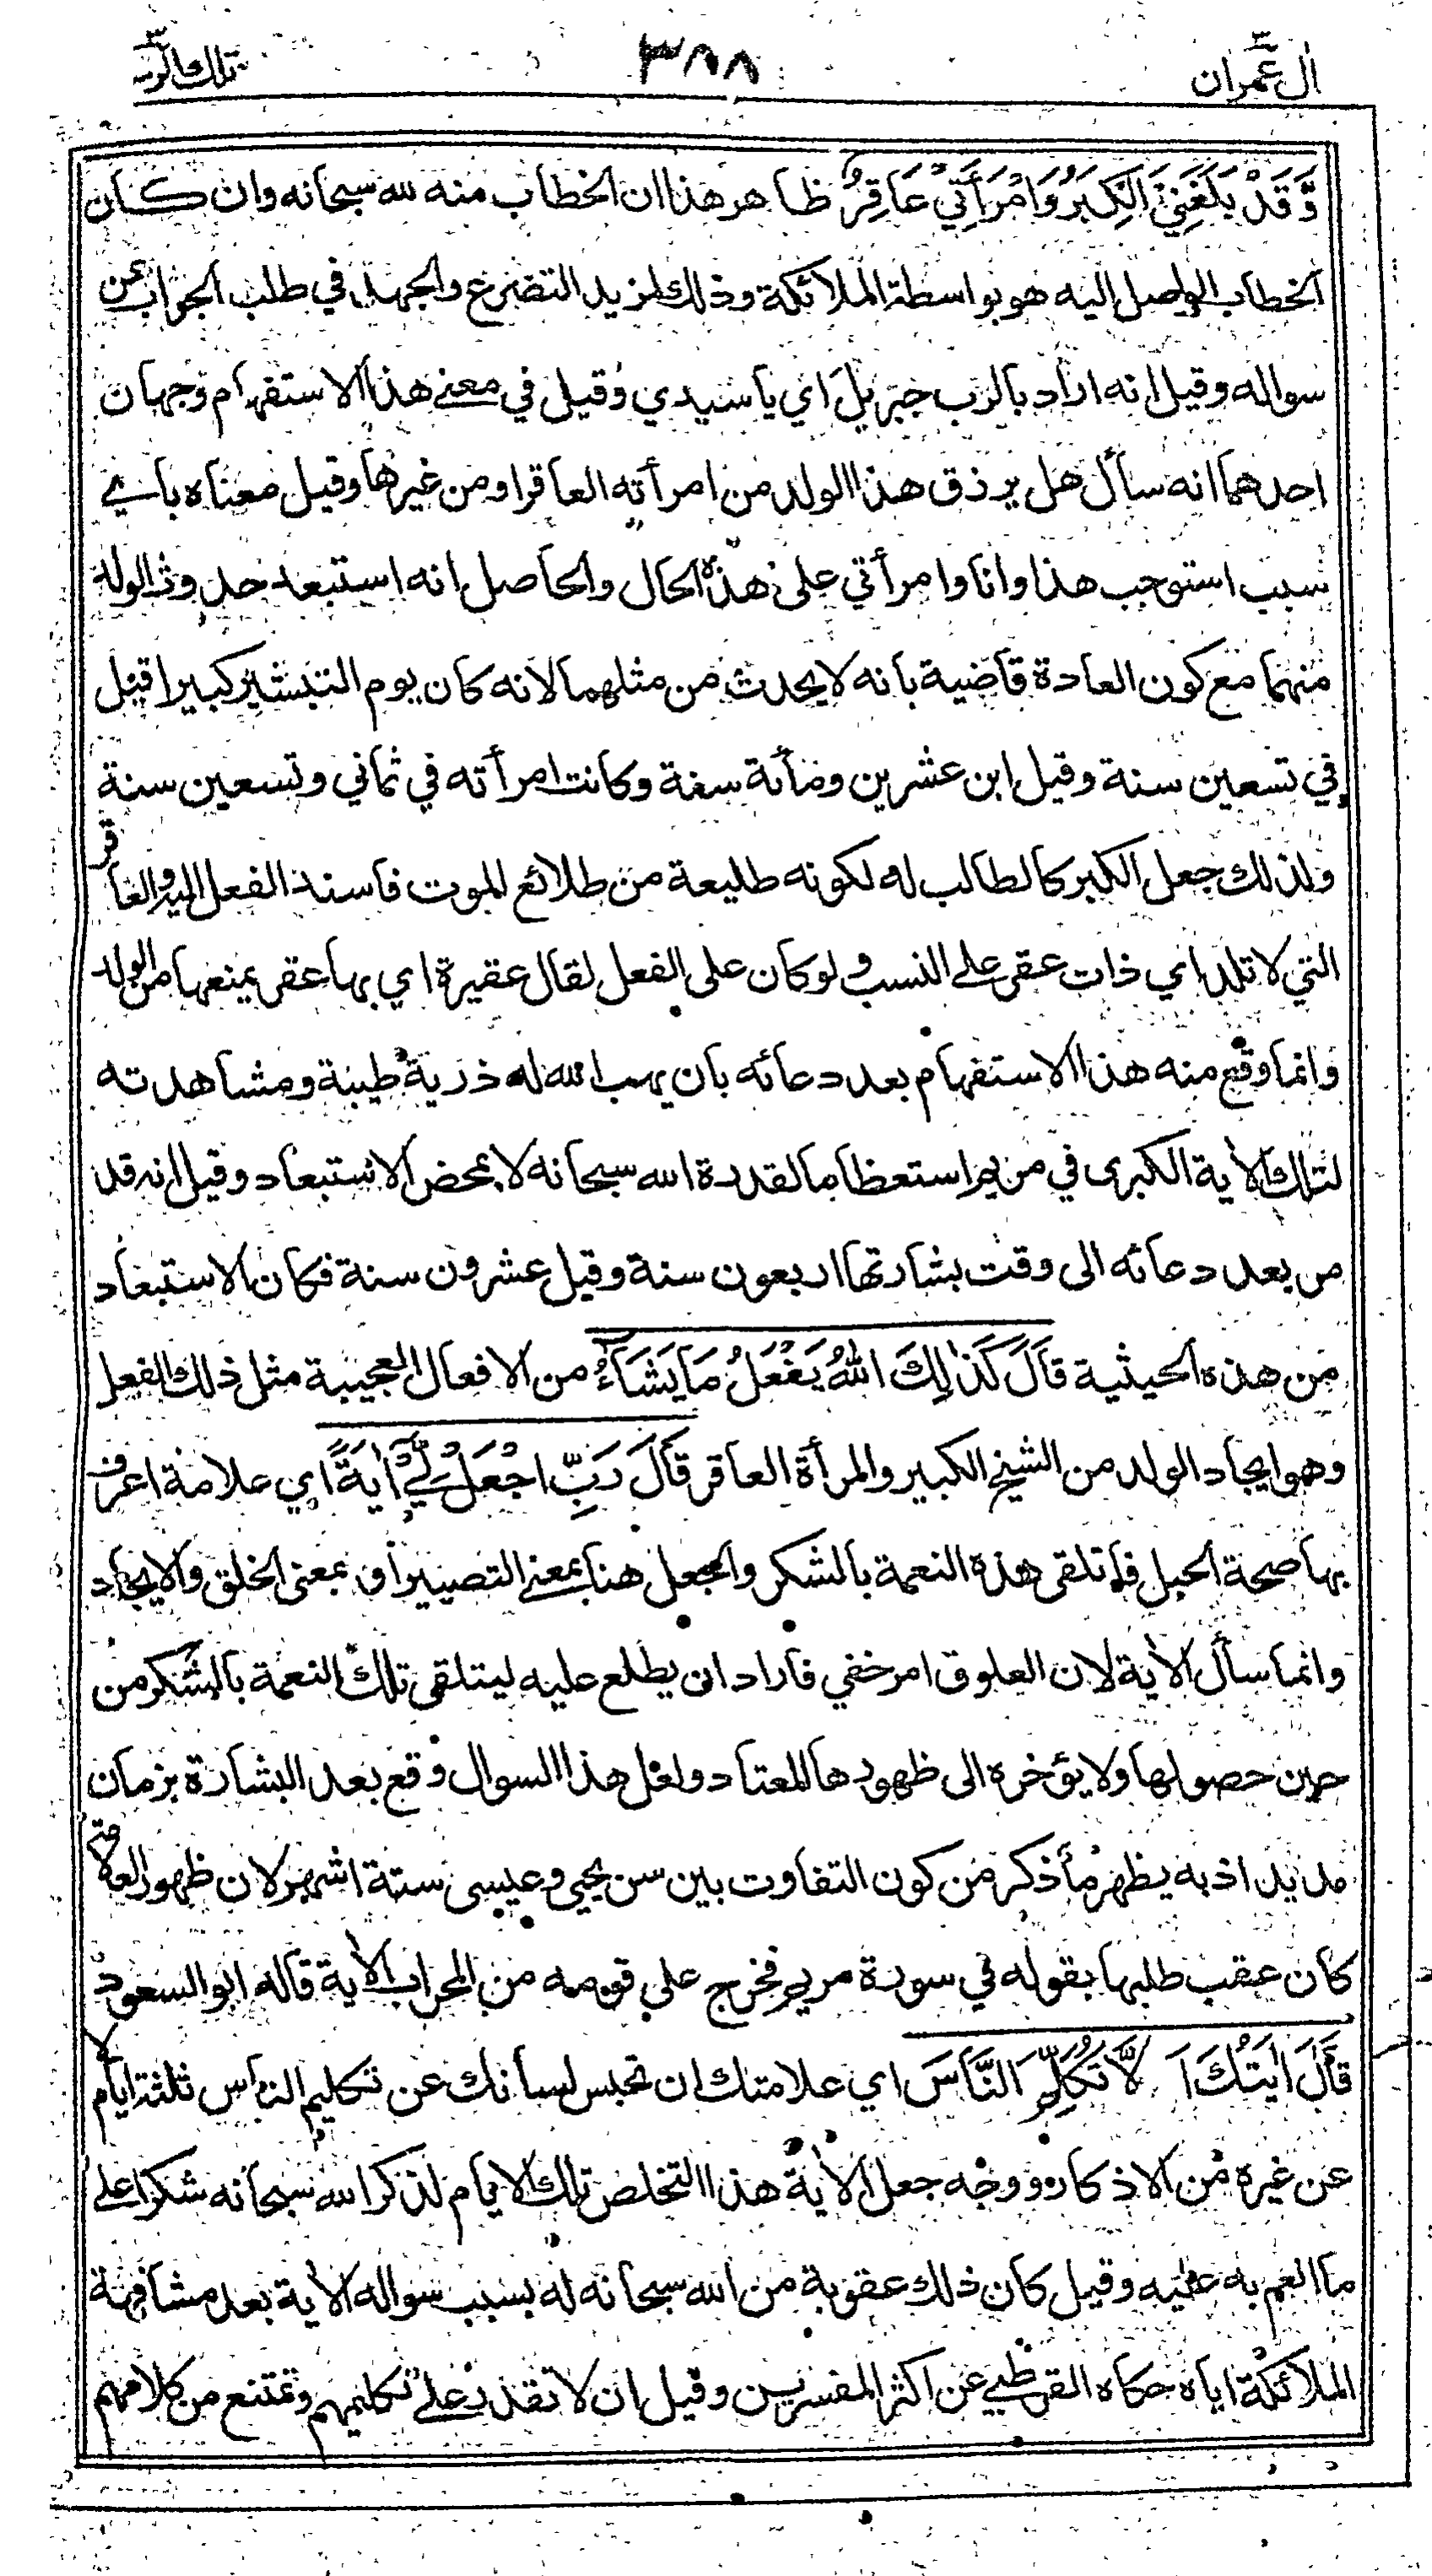 اٰل عمران ٣٨٨ تلك الرسل
وَّقَدْ بَلَغَنِيَ الْكِبَرُ وَامْرَأَتِيْ عَاقِرٌ ظاهر هذا ان الخطاب منه لله سبحانه وان كان
الخطاب الواصل اليه هو بواسطة الملائكة وذلك لمزيد التضرع والجهد في طلب الجواب عن
سواله وقيل انه اراد بالرب جبريل اي يا سيدي وقيل في معنى هذا الاستفهام وجهان
احدهما انه سأل هل يرزق هذا الولد من امرأته العاقر او من غيرها وقيل معناه باي
سبب استوجب هذا وانا وامرأتي على هذه الحال والحاصل انه استبعد حدوث الولد
منهما مع كون العادة قاضية بانه لا يحدث من مثلهما لانه كان يوم التبشير كبيرا قيل
في تسعين سنة وقيل ابن عشرين ومأئة سنة وكانت امرأته في ثماني وتسعين سنة
ولذلك جعل الكبر كالطالب له لكونه طليعة من طلائع الموت فاسند الفعل اليه والعاقر
التي لا تلد اي ذات عقر على النسب ولو كان على الفعل لقال عقيرة اي بها عقر يمنعها من الولد
وانما وقع منه هذا الاستفهام بعد دعائه بان يهب الله له ذرية طيبة ومشاهدته
لتلك الاٰية الكبرى في مريم استعظاما لقدرة الله سبحانه لا لمحض الاستبعاد وقيل انه قد
مر بعد دعائه الى وقت بشارتها اربعون سنة وقيل عشرون سنة فكان الاستبعاد
من هذه الحيثية قَالَ كَذٰلِكَ اللّٰهُ يَفْعَلُ مَا يَشَآءُ من الافعال العجيبة مثل ذلك الفعل
وهو ايجاد الولد من الشيخ الكبير والمرأة العاقر قَالَ رَبِّ اجْعَلْ لِّيْٓ اٰيَةً اي علامة اعرف
بها صحة الحبل فاتلقى هذه النعمة بالشكر والجعل هنا بمعنى التصيير او بمعنى الخلق والايجاد
وانما سأل الاٰية لان العلوق امر خفي فاراد ان يطلع عليه ليتلقى تلك النعمة بالشكر من
حين حصولها ولا يؤخره الى ظهورها المعتاد ولعل هذا السوال وقع بعد البشارة بزمان
مديد اذ به يظهر ما ذكر من كون التفاوت بين سن يحيى وعيسى ستة اشهر لان ظهور العلامة
كان عقب طلبها بقوله في سورة مريم فخرج على قومه من المحراب الاٰية قاله ابو السعود
قَالَ اٰيَتُكَ اَلَّا تُكَلِّمَ النَّاسَ اي علامتك ان تحبس لسانك عن تكليم الناس ثلثة ايام لا
عن غيره من الاذكار ووجه جعل الاٰية هذا التخلص تلك الايام لذكر الله سبحانه شكرا على
ما انعم به عليه وقيل كان ذلك عقوبة من الله سبحانه له بسبب سواله الاٰية بعد مشافهة
الملائكة اياه حكاه القرطبي عن اكثر المفسرين وقيل ان لا تقدر على تكليمهم وتمتنع من كلامهم